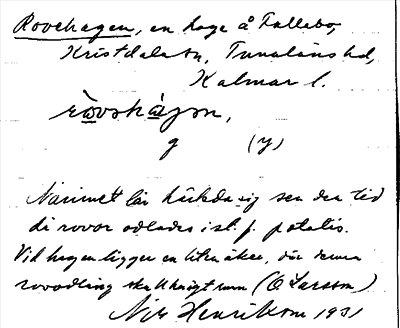 Rovehagen, en hage å Fallebo,
Kristdala sn, Tunaläns hd,
Kalmar l.
ròvshàgən,
g (y)
Namnet lär härleda sig sen den tid
då rovor odlades i st. f. potatis.
Vid hagen ligger en liten åker, där denna
rovodling skall ha ägt rum (O Larsson)
Nils Henriksson 1931